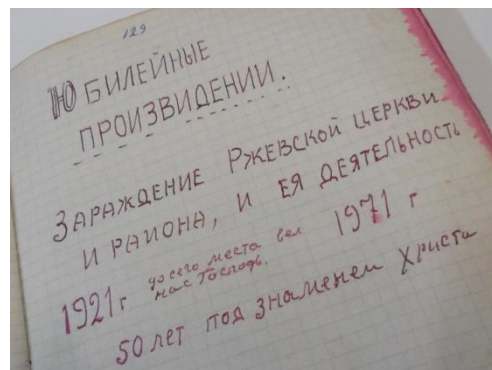 129
ЮБИЛЕЙНЫЕ
ПРОИЗВИДЕНИИ.
ЗАРАЖДЕНИЕ РЖЕВСКОЙ ЦЕРКВИ
И РАИОНА, И ЕЯ ДЕЯТЕЛЬНОСТЬ
1921 г до сего места вел 1971 г
нас Господь.
50 лет под знаменем Христа